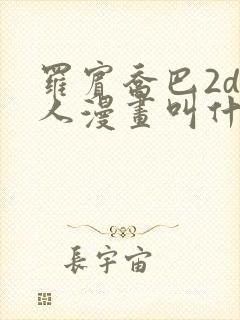 羅賓喬巴2d
人漫畫叫什
長宇宙